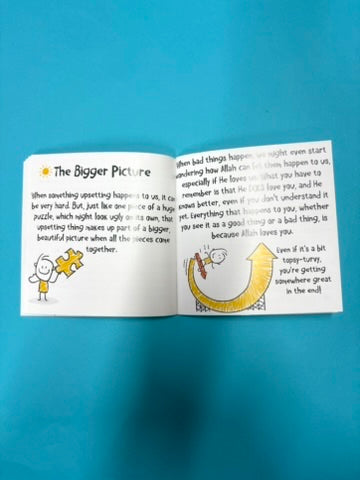 The Bigger Picture
When something upsetting happens to us, it can
be very hard. But, just like one piece of a huge
puzzle, which might look ugly on its own, that
upsetting thing makes up part of a bigger,
beautiful picture when all the pieces come
together.
When bad things happen, we might even start
wondering how Allah can let them happen to us,
especially if He loves us. What you have to
remember is that He DOES love you, and He
knows better, even if you don't understand it
yet. Everything that happens to you, whether
you see it as a good thing or a bad thing, is
because Allah loves you.
Even if it's a bit
topsy-turvy,
you're getting
somewhere great
in the end!